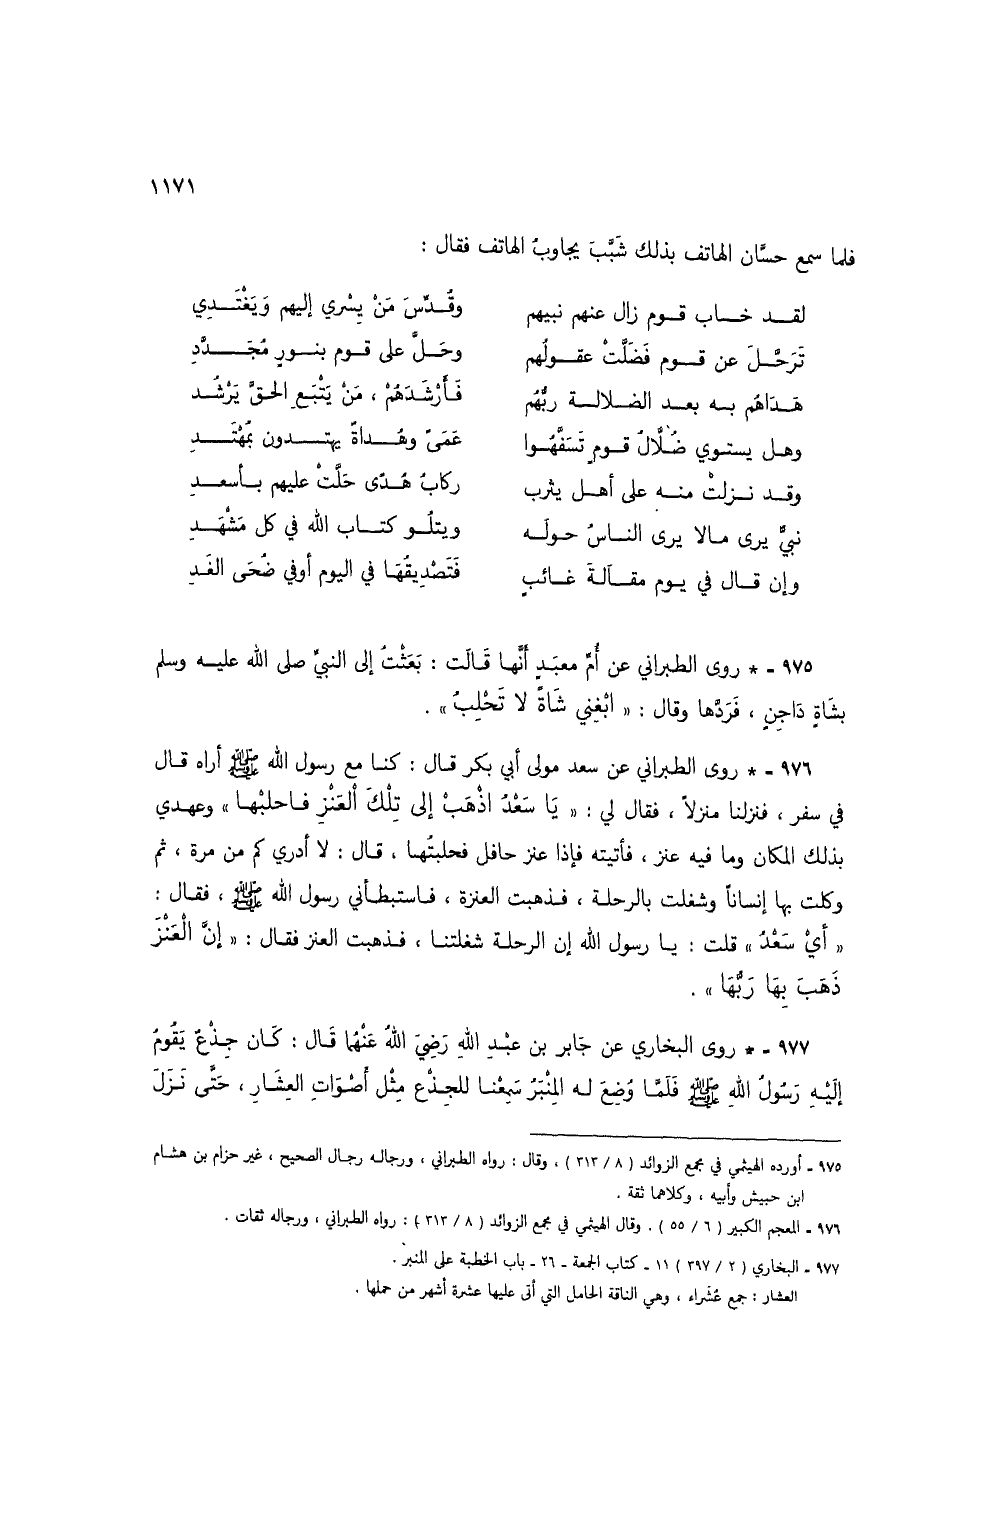 ١١٧١
فلما سمع حسَّان الهاتف بذلك شَبَّبَ يجاوبُ الهاتف فقال :
لقد خاب قوم زال عنهم نبيهم وقُدِّسَ مَنْ يسْري إليهم وَيَغْتَدِي
تَرَحَّلَ عن قوم فَضَلَّتْ عقولُهم وحَلَّ على قوم بنورٍ مُجَدَّدِ
هَدَاهُم به بعد الضلالة ربُّهُم فَأَرْشَدَهُمْ ، مَنْ يَتْبَعِ الحقَّ يَرْشُد
وهل يستوي ضُلَّالُ قومٍ تَسَفَّهُوا عَمَىً وهُداةً يهتدون بمُهْتَدِ
وقد نزلتْ منه على أهل يثرب ركابُ هُدًى حَلَّتْ عليهم بأسعدِ
نبيٌّ يرى مالا يرى الناسُ حولَه ويتلُو كتاب الله في كل مَشْهَدِ
وإن قال في يوم مقالةَ غائبٍ فَتَصْدِيقُهَا في اليوم أوفي ضُحَى الغَدِ
٩٧٥ - * روى الطبراني عن أُمِّ معبَدٍ أَنَّها قَالَت : بَعَثْتُ إلى النبيِّ صلى الله عليه وسلم
بشَاةٍ دَاجِنٍ ، فَرَدَّها وقال : « ابْغِني شَاةً لا تَحْلِبُ » .
٩٧٦ - * روى الطبراني عن سعد مولى أبي بكر قال : كنا مع رسول الله ﷺ أراه قال
في سفر ، فنزلنا منزلاً ، فقال لي : « يَا سَعْدُ اذْهَبْ إلى تِلْكَ الْعَنْزِ فاحلبْها » وعهدي
بذلك المكان وما فيه عنز ، فأتيته فإذا عنز حافل فحلبتُها ، قال : لا أدري كم من مرة ، ثم
وكلت بها إنساناً وشغلت بالرحلة ، فذهبت العنزة ، فاستبطأني رسول الله ﷺ ، فقال :
« أَيْ سَعْدُ » قلت : يا رسول الله إن الرحلة شغلتنا ، فذهبت العنز فقال : « إنَّ الْعَنْزَ
ذَهَبَ بِهَا رَبُّهَا » .
٩٧٧ - * روى البخاري عن جَابر بن عبْدِ اللهِ رَضِيَ اللهُ عَنْهُما قَال : كَان جِذْعٌ يَقُومُ
إلَيْهِ رَسُولُ اللهِ ﷺ فَلَمَّا وُضِعَ له المِنْبَرُ سَمِعْنا للجِذْعِ مِثْل أَصْوَاتِ العِشَارِ ، حَتَّى نَزَلَ
٩٧٥ - أورده الهيثمي في مجمع الزوائد ( ٨ / ٣١٣ ) ، وقال : رواه الطبراني ، ورجاله رجال الصحيح ، غير حزام بن هشام
ابن حبيش وأبيه ، وكلاهما ثقة .
٩٧٦ - المعجم الكبير ( ٦ / ٥٥ ) . وقال الهيثمي في مجمع الزوائد ( ٨ / ٣١٣ ) : رواه الطبراني ، ورجاله ثقات .
٩٧٧ - البخاري ( ٢ / ٣٩٧ ) ١١ - كتاب الجمعة - ٢٦ - باب الخطبة على المنبر .
العشار : جمع عُشَراء ، وهي الناقة الحامل التي أتى عليها عشرة أشهر من حملها .